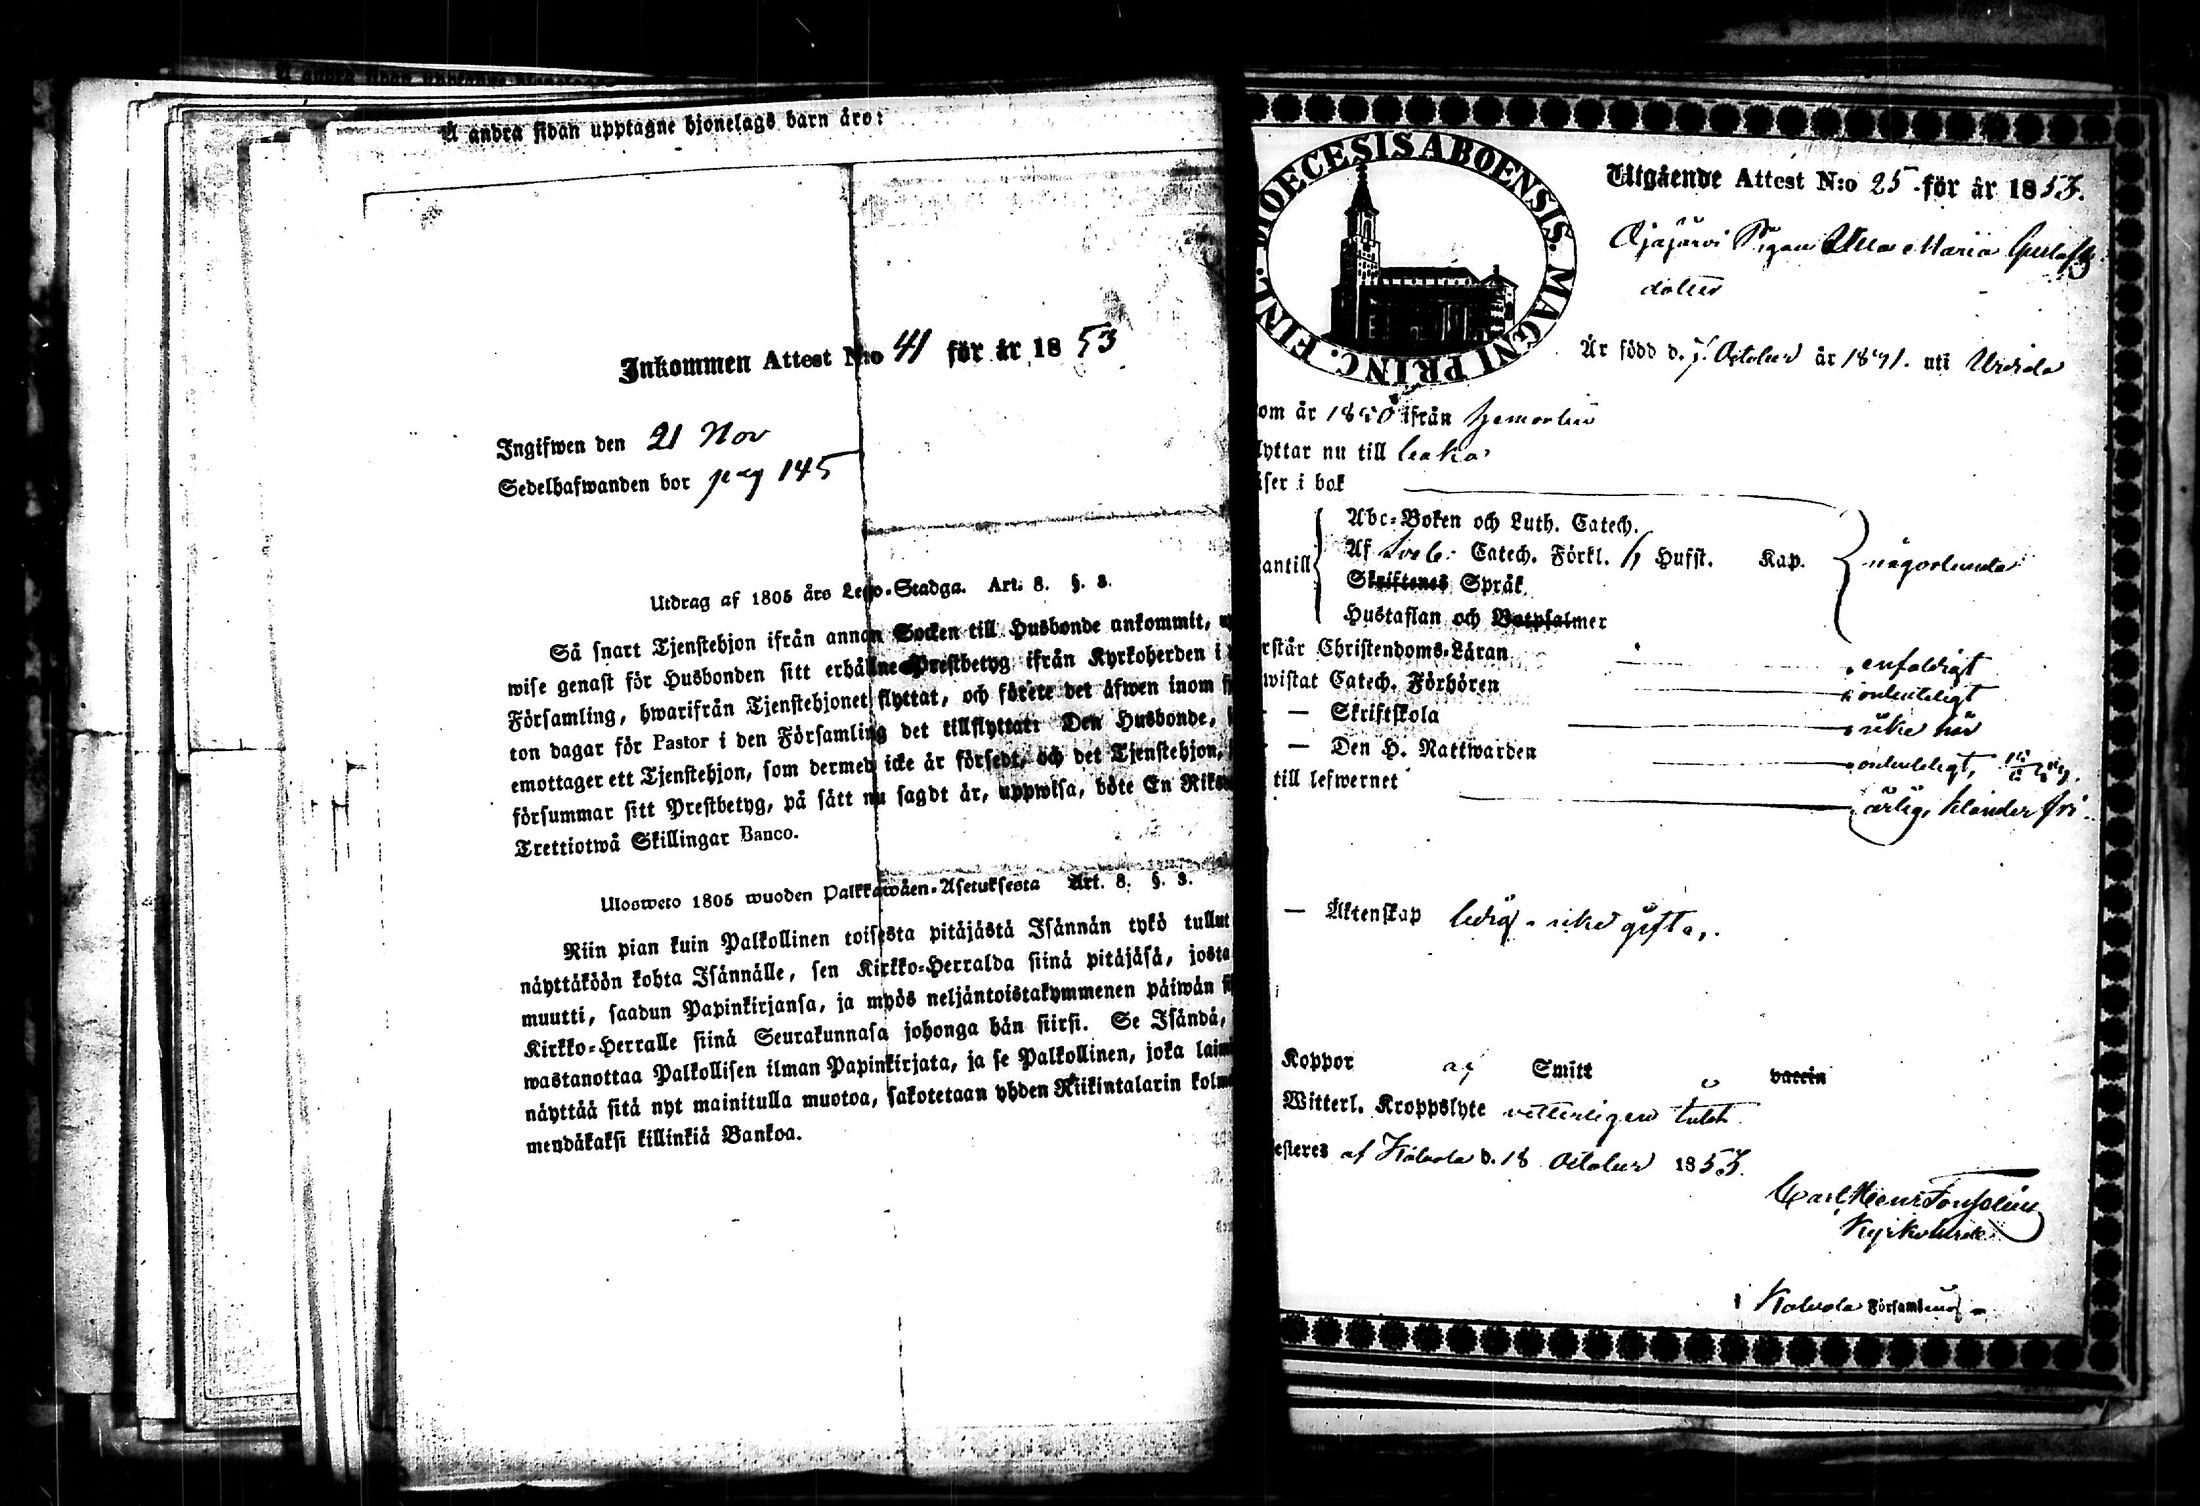 Å andra sidan upptagne hjonelags barn äro:
Inkommen Attest N:o 41 för år 1853
Ingifwen den 21 Nov
Sedelhafwanden bor pag 145
Utdrag af 1805 års Lego-Stadga. Art. 8. §. 3.
Så snart Tjenstehjon ifrån annan Socken till Husbonde ankommit,
wise genast för Husbonden sitt erhållne Prestbetyg ifrån Kyrkoherden i
Församling, hwarifrån Tjenstehjonet flyttat, och förete det äfwen inom
ton dagar för Pastor i den Församling det tillflyttat: Den Husbonde,
emottager ett Tjenstehjon, som dermed icke är försedt, och det Tjenstehjon,
försummar sitt Prestbetyg, på sätt nu sagdt är, uppwisa, böte En Riks
Trettiotwå Skillingar Banco.
Ulosweto 1805 wuoden Palkkawäen-Asetuksesta Art. 8. §. 3.
Niin pian kuin Palkollinen toisesta pitäjästä Isännän tykö tullut
näyttäköön kohta Isännälle, sen Kirkko-Herralda siinä pitäjäsä, josta
muutti, saadun Papinkirjansa, ja myös neljäntoistakymmenen päiwän
Kirkko-Herralle siinä Seurakunnasa johonga hän siirsi. Se Isändä,
wastanottaa Palkollisen ilman Papinkirjata, ja se Palkollinen, joka laim
näyttää sitä nyt mainitulla muotoa, sakotetaan yhden Riikintalarin kolm
mendäkaksi killinkiä Bankoa.
DIOECESIS ABOENSIS. MAGNI PRINC. FINL.
Utgående Attest N:o 25 för år 1853.
Ojajärvi Pigan Ulla Maria Gustafs
dotter
Är född d. 7 October år 1841. uti Urdiala
om år 1850 ifrån
lyttar nu till
äser i bok
antill
Abc-Boken och Luth. Catech.
Af Sveb. Catech. Förkl. Hufst. Kap.
Skriftenes Språk
Hustaflan och Botpsalmer
någorlunda
rstår Christendoms-Läran enfaldigt
wistat Catech. Förhören ordentligt
— Skriftskola icke här
— Den H. Nattwarden ordentligt,
till lefwernet ärlig, klanderfri.
— Äktenskap ledig - icke gift.
Koppor af Smitt vaccin
Witterl. Kroppslyte vetterligen intet
esteres af Kalvola d. 18 October 1853.
Carl Henr
Kyrkoherde
i Kalvola Församling